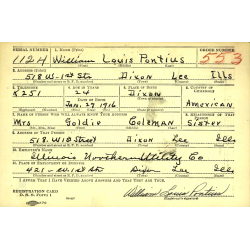 SERIAL NUMBER 1. NAME (Print) ORDER NUMBER
1124 William Louis Pontius 553
2. ADDRESS (Print)
518 W-1st St. Dixon Lee Ills
3. TELEPHONE 4. AGE IN YEARS 5. PLACE OF BIRTH 6. COUNTRY OF CITIZENSHIP
K251 24 Dixon
DATE OF BIRTH
Jan. 27 1916 American
7. NAME OF PERSON WHO WILL ALWAYS KNOW YOUR ADDRESS 8. RELATIONSHIP OF THAT PERSON
Mrs Goldie Coleman Sister
9. ADDRESS OF THAT PERSON
518 W 1st Street Dixon Lee Ills
10. EMPLOYER'S NAME
Illinois Northern Utility Co
11. PLACE OF EMPLOYMENT OR BUSINESS
421 - W 1st St Dixon Lee Ills
I AFFIRM THAT I HAVE VERIFIED ABOVE ANSWERS AND THAT THEY ARE TRUE.
REGISTRATION CARD
D. S. S. Form 1
William Louis Pontius